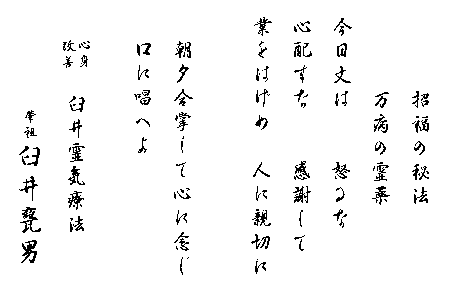 招福の秘法
万病の霊薬
今日丈は　怒るな
心配すな　感謝して
業をはげめ　人に親切に
朝夕合掌して心に念じ
口に唱へよ
心身
改善
臼井靈氣療法
肇祖
臼井甕男